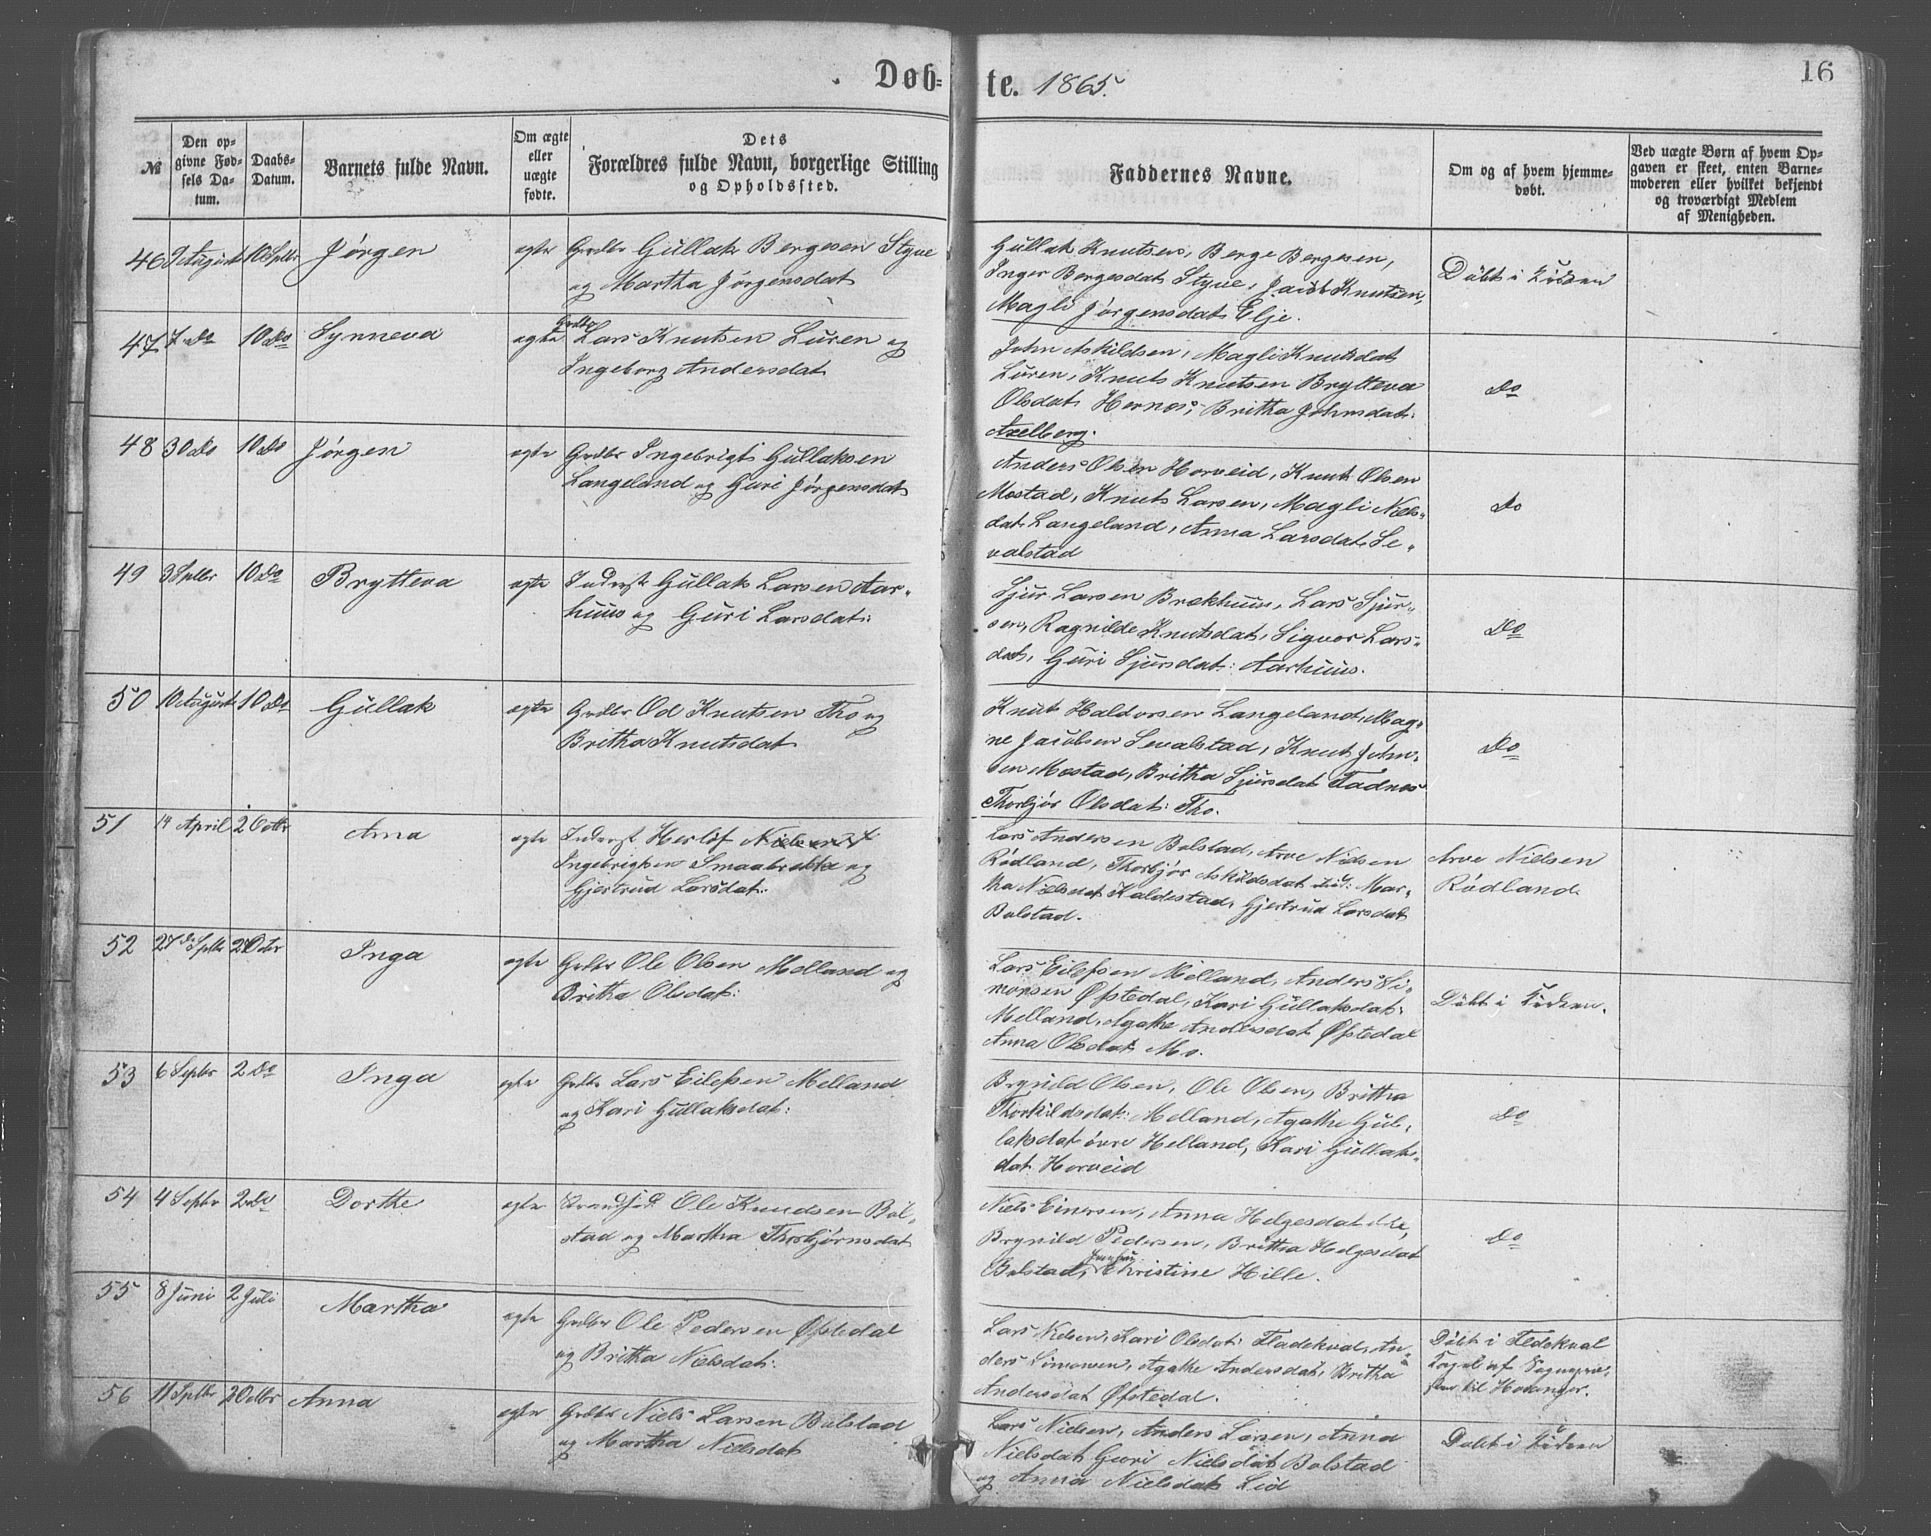 Døb=
te. 1865.
16
№
Den op-
givne Fød-
sels Da-
tum.
Daabs-
Datum.
Barnets fulde Navn.
Om ægte
eller
uægte
fødte.
Dets
Forældres fulde Navn, borgerlige Stilling
og Opholdssted.
Faddernes Navne.
Om og af hvem hjemme-
døbt.
Ved uægte Børn af hvem Op-
gaven er skeet, enten Barne-
moderen eller hvilket bekjendt
og troværdigt Medlem
af Menigheden.
46 9 August 10 Septbr Jørgen ægte Grdbr Gullak Bergesen Styve
og Martha Jørgensdat
Gullak Knutsen, Berge Bergesen,
Inger Bergesdat Styve, Jacob Knutsen,
Magli Jørgensdat Elje.
Døbt i Kirken
47 7 Do 10 Do Synneva ægte Grdbr Lars Knutsen Luren og
Ingeborg Andersdat
John Askildsen, Magli Knutsdat
Luren, Knut Knutsen Brytteva
Olsdat Hernes, Britha Johnsdat:
Axelberg.
Do
48 30 Do 10 Do Jørgen ægte Grdbr Ingebrigt Gullaksen
Langeland og Guri Jørgensdat
Anders Olsen Horveid, Knut Olsen
Mestad, Knut Larsen, Magli Niels-
dat Langeland, Anna Larsdat Se-
valstad
Do
49 3 Septbr 10 Do Brytteva ægte Inderst Gullak Larsen Aar-
huus og Guri Larsdat:
Sjur Larsen Brækhuus, Lars Sjur-
sen, Ragnilde Knutsdat, Signor Lars-
dat, Guri Sjursdat: Aarhuus.
Do
50 10 August 10 Do Gullak ægte Grdbr Od Knutsen Tho og
Britha Knutsdat
Knut Haldorsen Langeland, Mag-
ne Jacobsen Sevalstad, Knut John-
sen Mestad, Britha Sjursdat Fadnes
Thorbjør Olsdat: Tho.
Do
51 14 April 2 Octbr Anna ægte Inderst Herlof
Ingebrigtsen Smaabrekke og
Gjertrud Larsdat:
Lars Andersen Bolstad, Arve Nielsen
Rødland, Thorbjør Askildsdat ibid: Mar-
tha Nielsdat Kaldestad, Gjertrud Larsdat
Bolstad.
Arve Nielsen
Rødland
52 27 Septbr 2 Octbr Inga ægte Grdbr Ole Olsen Melland og
Britha Olsdat:
Lars Eilefsen Melland, Anders Si-
monsen Øfstedal, Kari Gullaksdat:
Melland, Agathe Andersdat Øfstedal
Anna Olsdat Mo.
Døbt i Kirken.
53 6 Septbr 2 Do Inga ægte Grdbr Lars Eilefsen Melland
og Kari Gullaksdat:
Brynild Olsen, Ole Olsen, Britha
Thorkildsdat: Melland, Agathe Gul-
laksdat øvre Helland, Kari Gullaks-
dat Horveid
Do
54 4 Septbr 2 Do Dorthe ægte Strandsid. Ole Knudsen Bol-
stad og Martha Thorbjørnsdat
Niels Einersen, Anna Helgesdat
Brynild Pedersen, Britha Helgesdat
Bolstad, Jomfru Christine Hille.
Do
55 8 Juni 2 Juli Martha ægte Grdbr Ole Pedersen Øfstedal
og Britha Nielsdat:
Lars Nielsen, Kari Olsdat: Fladekval, An-
ders Simonsen, Agathe Andersdat, Britha
Andersdat Øfstedal.
Døbt i Fledekval
Kapel af Sognepræ-
sten til Hosanger.
56 11 Septbr 2 Octbr Anna ægte Grdbr Niels Larsen Bolstad
og Martha Nielsdat
Lars Nielsen, Anders Larsen, Anna
Nielsdat Guri Nielsdat Bolstad
og Anna Nielsdat Lid
Døbt i Kirken